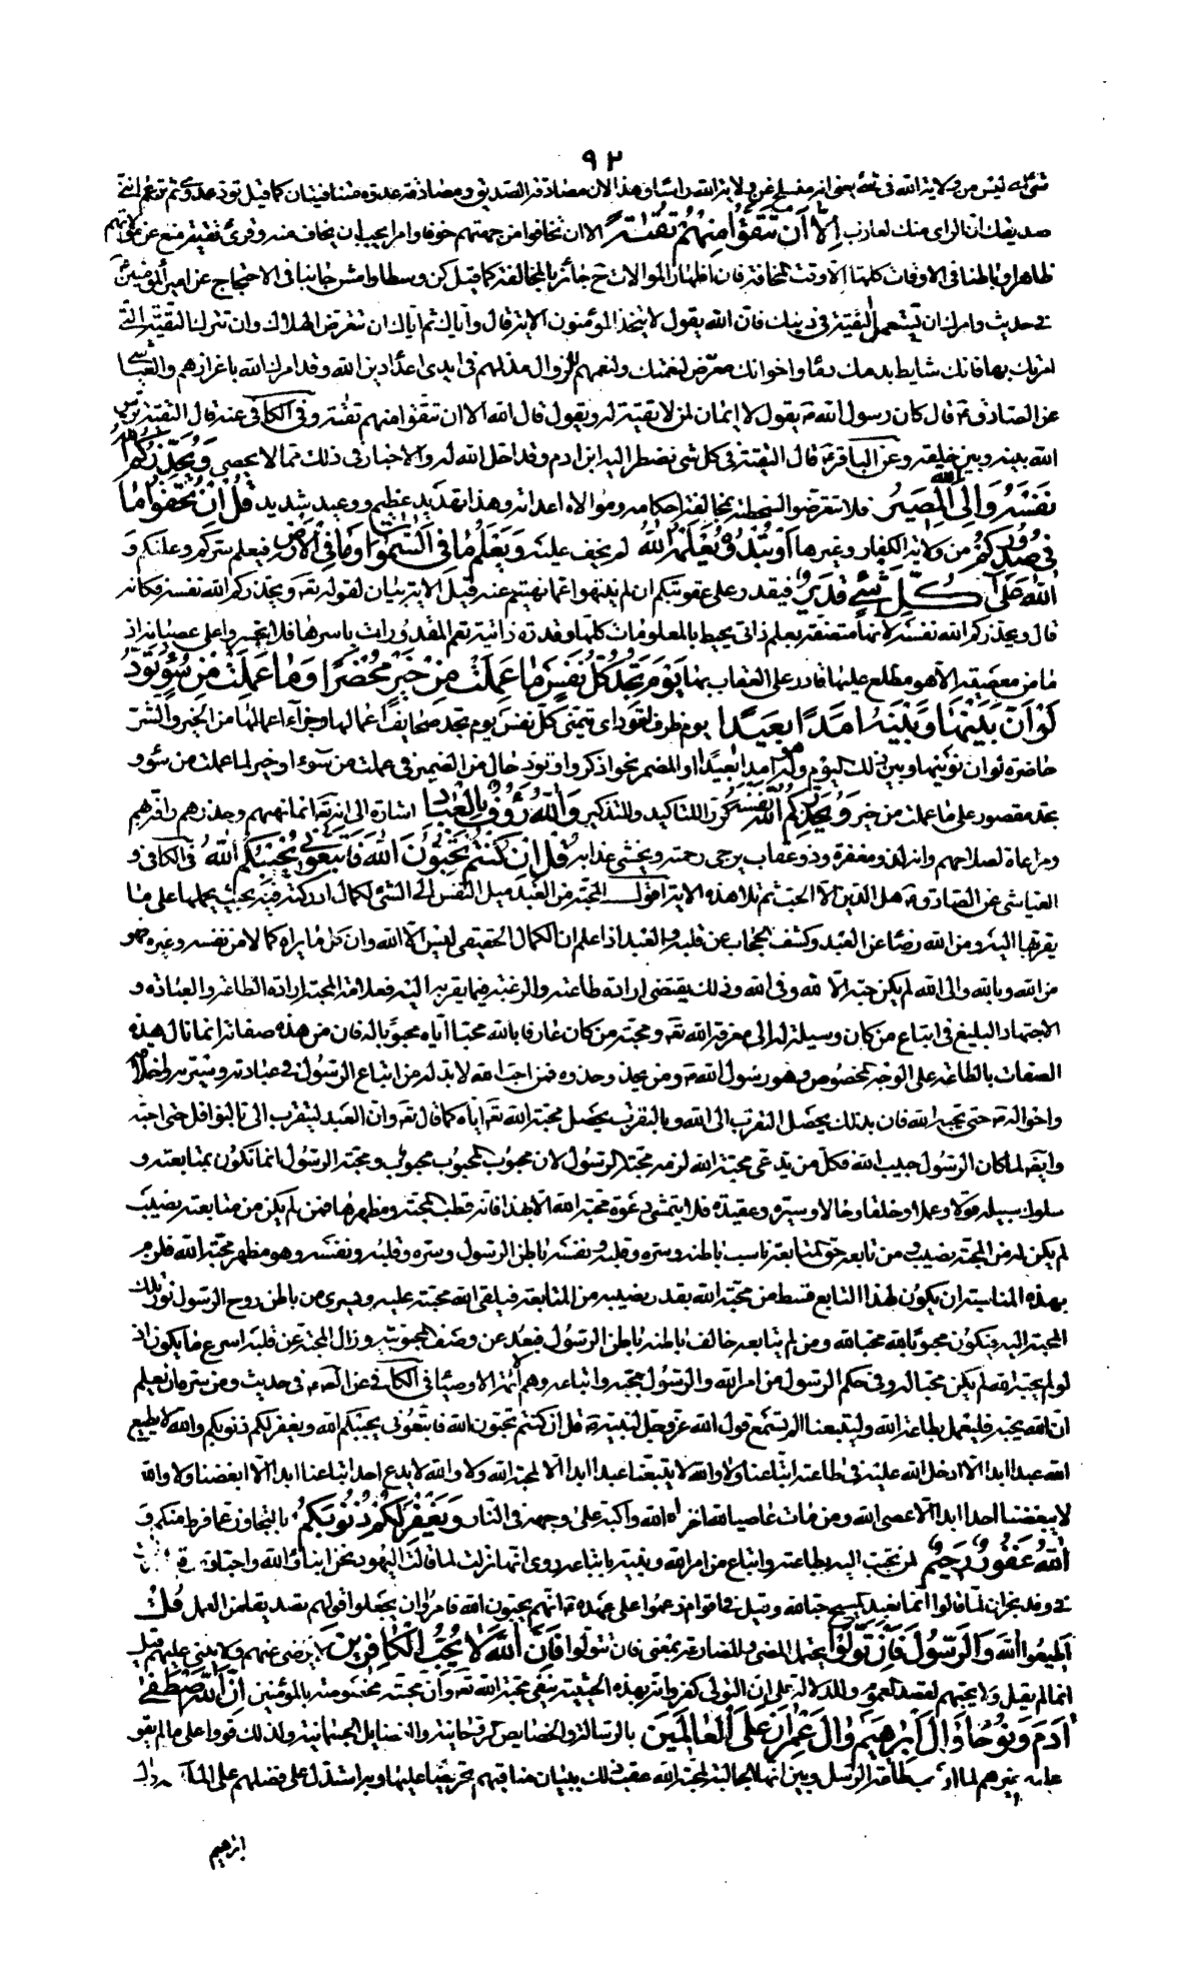 ٩٢
شيء ليس من ولاية الله في شيء يعني انه منسلخ عن ولاية الله راسا وهذا لان مصادقة الصديق ومصادقة عدوه متنافيتان كما قيل تود عدوي ثم تزعم انني
صديقك ان الراى منك لعازب إِلَّا أَنْ تَتَّقُوا مِنْهُمْ تُقٰىةً الا ان تخافوا من جهتهم خوفا او امرا يجب ان يخاف منه وقرئ تقية منع عن موالاتهم
ظاهرا وباطنا في الاوقات كلها الا وقت المخافة فان اظهار الموالات ح جائز بالمخالفة كما قيل كن وسطا وامش جانبا في الاحتجاج عن امير المؤمنين
في حديث وامرك ان تستعمل التقية في دينك فان الله يقول لا يتخذ المؤمنون الاية قال واياك ثم اياك ان تتعرض الهلاك وان تترك التقية التي
امرتك بها فانك شايط بدمك ودماء اخوانك معرض لنعمتك ولنعمهم للزوال مذلهم في ايدي اعداء دين الله وقد امرك الله باعزازهم والعياشي
عن الصادق ع قال كان رسول الله ص يقول لا ايمان لمن لا تقية له ويقول قال الله الا ان تتقوا منهم تقية وفي الكافي عنه قال التقية ترس
الله بينه وبين خليقته وعن الباقر ع قال التقية في كل شي يضطر اليه ابن ادم وقد احل الله له والاخبار في ذلك مما لا يحصى وَيُحَذِّرُكُمُ اللهُ
نَفْسَهُ وَإِلَى اللهِ الْمَصِيرُ فلا تتعرضوا لسخطه بمخالفة احكامه وموالاه اعدائه وهذا تهديد عظيم ووعيد شديد قُلْ إِنْ تُخْفُوا مَا
فِي صُدُورِكُمْ من ولاية الكفار وغيرها أَوْ تُبْدُوهُ يَعْلَمْهُ اللهُ لم يخف عليه وَيَعْلَمُ مَا فِي السَّمٰوَاتِ وَمَا فِي الْأَرْضِ فيعلم سركم وعلنكم وَ
اللهُ عَلَى كُلِّ شَيْءٍ قَدِيرٌ فيقدر على عقوبتكم ان لم ينتهوا عما نهيتم عنه قيل الاية بيان لقوله تعه ويحذركم الله نفسه فكانه
قال ويحذركم الله نفسه لانها متصفة بعلم ذاتي يحيط بالمعلومات كلها وقدرة ذاتية تعم المقدورات باسرها فلا تجسروا على عصيانه اذ
ما من معصية الا هو مطلع عليها قادر على العقاب بها يَوْمَ تَجِدُ كُلُّ نَفْسٍ مَا عَمِلَتْ مِنْ خَيْرٍ مُحْضَرًا وَمَا عَمِلَتْ مِنْ سُوءٍ تَوَدُّ
لَوْ أَنَّ بَيْنَهَا وَبَيْنَهُ أَمَدًا بَعِيدًا يوم ظرف لتود اي تتمنى كل نفس يوم تجد صحايف اعمالها وجزاء اعمالها من الخير والشر
حاضرة لو ان بينها وبين ذلك اليوم وهوله امدا بعيدا او المضمر نحو اذكر وتود حال من الضمير في عملت من سوء او خبر لما عملت من سوء و
تجد مقصور على ما عملت من خير وَيُحَذِّرُكُمُ اللهُ نَفْسَهُ كرره للتاكيد والتذكير وَاللهُ رَؤُفٌ بِالْعِبَادِ اشارة الى انه تعه انما نهيهم وحذرهم رافة بهم
ومراعاة لصلاحهم وانه لذو مغفرة وذو عقاب يرجى رحمته ويخشى عذابه قُلْ إِنْ كُنْتُمْ تُحِبُّونَ اللهَ فَاتَّبِعُونِي يُحْبِبْكُمُ اللهُ في الكافي و
العياشي عن الصادق ع هل الدين الا الحب ثم تلا هذه الاية اقول المحبة من العبد ميل النفس الى الشي لكمال ادركته فيه بحيث يحملها على ما
يقربها اليه ومن الله رضا عن العبد وكشف الحجاب عن قلبه والعبد اذا علم ان الكمال الحقيقي ليس الا الله وان كل ما يراه كمالا من نفسه وغيره فهو
من الله وبالله والى الله لم يكن حبه الا لله وفي الله وذلك يقتضي ارادة طاعته والرغبة فيما يقربه اليه فعلامة المحبة ارادة الطاعة والعبادة و
الاجتهاد البليغ في اتباع من كان وسيلة له الى معرفة الله تعه ومحبته من كان عارفا بالله محبا اياه محبوبا له فان من هذه صفاته انما نال هذه
الصفات بالطاعة على الوجه المخصوص وهو رسول الله ص ومن يحذو حذوه فمن احب الله لا بد له من اتباع الرسول في عبادته وسيرته واخلاقه
واحواله حتى يحبه الله فان بذلك يحصل التقرب الى الله وبالتقرب يحصل محبة الله تعه اياه كما قال تعه وان العبد ليتقرب الي بالنوافل حتى احبه
وايضا لما كان الرسول حبيب الله فكل من يدعي محبة الله لزمه محبة الرسول لان محبوب المحبوب محبوب ومحبة الرسول انما تكون بمتابعته و
سلوك سبيله قولا وعملا وخلقا وحالا وسيرة وعقيدة فلا يتمشى دعوة محبة الله الا بهذا فانه قطب المحبة ومظهرها فمن لم يكن من متابعته نصيب
لم يكن له من المحبة نصيب ومن تابعه حق المتابعة ناسب باطنه وسره وقلبه ونفسه باطن الرسول وسره وقلبه ونفسه وهو مظهر محبة الله فلزم
بهذه المناسبة ان يكون لهذا التابع قسط من محبة الله بقدر نصيبه من المتابعة فيلقى الله محبته عليه ويسري من باطن روح الرسول نور تلك
المحبة اليه فيكون محبوبا لله محبا لله ومن لم يتابعه خالف باطنه باطن الرسول فبعد عن وصف المحبوبية وزال المحبة عن قلبه اسرع ما يكون اذ
لو لم يحببه الله لم يكن محبا له وفي حكم الرسول من امر الله والرسول بحبه واتباعه وهم الائمة الاوصياء في الكافي عن الصادق ع في حديث ومن سره ان يعلم
ان الله يحبه فليعمل بطاعة الله وليتبعنا الم تسمع قول الله عز وجل لنبيه ص قل ان كنتم تحبون الله فاتبعوني يحببكم الله ويغفر لكم ذنوبكم والله لا يطيع
الله عبد ابدا الا ادخل الله عليه في طاعته اتباعنا ولا والله لا يتبعنا عبد ابدا الا احبه الله ولا والله لا يدع احد اتباعنا ابدا الا ابغضنا ولا والله
لا يبغضنا احد ابدا الا عصى الله ومن مات عاصيا لله اخزاه الله واكبه على وجهه في النار وَيَغْفِرْ لَكُمْ ذُنُوبَكُمْ بالتجاوز عما فرط منكم وَ
اللهُ غَفُورٌ رَحِيمٌ لمن تحبب اليه بطاعته واتباع من امر الله ونبيه باتباعه روي انها نزلت لما قالت اليهود نحن ابناء الله واحباؤه وقيل نزلت
في وفد نجران لما قالوا انما نعبد المسيح حبا لله وقيل في اقوام زعموا على عهده ص انهم يحبون الله فامروا ان يجعلوا لقولهم تصديقا من العمل قُلْ
أَطِيعُوا اللهَ وَالرَّسُولَ فَإِنْ تَوَلَّوْا يحتمل المضي والمضارعة بمعنى فان تتولوا فَإِنَّ اللهَ لَا يُحِبُّ الْكَافِرِينَ لا يرضى عنهم ولا يثني عليهم قيل
انما لم يقل لا يحبهم لقصد العموم والدلالة على ان التولي كفر وانه بهذه الحيثية ينفي محبة الله تعه وان محبته مخصوصة بالمؤمنين إِنَّ اللهَ اصْطَفَى
آدَمَ وَنُوحًا وَآلَ إِبْرَاهِيمَ وَآلَ عِمْرَانَ عَلَى الْعَالَمِينَ بالرسالة والخصايص الروحانية والفضايل الجسمانية ولذلك قووا على ما لم يقو
عليه غيرهم لما اوجب طاعة الرسل وبين انها الجالبة لمحبة الله عقب ذلك ببيان مناقبهم تحريضا عليها وبه استدل على فضلهم على الملائكة وآل
ابرهيم